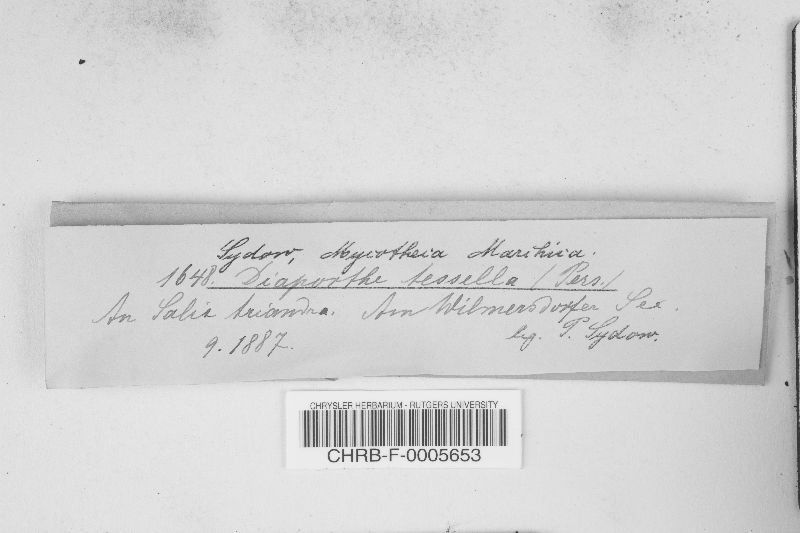 Sydow, Mycotheca Marchica.
1648. Diaporthe tessella (Pers.)
An Salix triandra. Am Wilmersdorfer See.
9. 1887. leg. P. Sydow.
CHRYSLER HERBARIUM - RUTGERS UNIVERSITY
CHRB-F-0005653